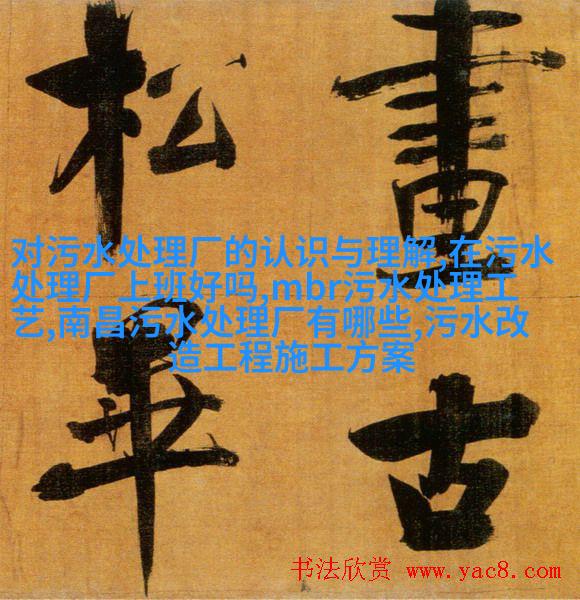 畫古
松
对污水处理厂的认识与理解,在污水
处理厂上班好吗,mbr污水处理工
艺,南昌污水处理厂有哪些,污水改
造工程施工方案
书法欣赏 www.yac8.com